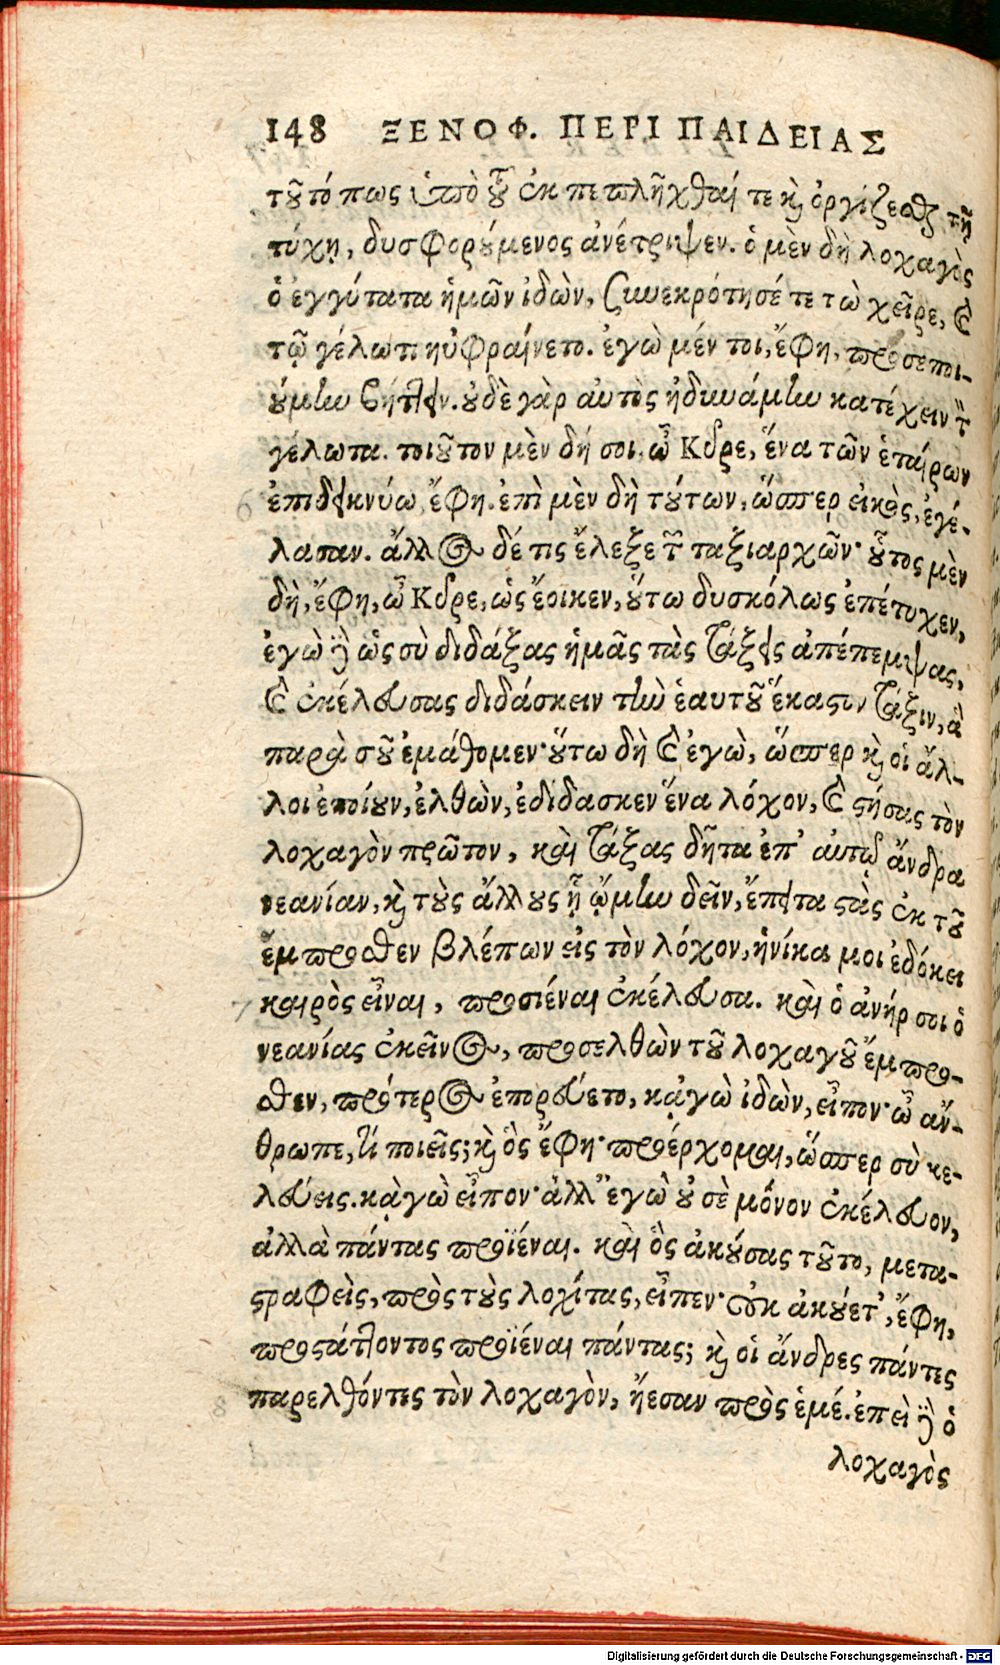 148 ΞΕΝΟΦ. ΠΕΡΙ ΠΑΙΔΕΙΑΣ
τοῦτό πως ὑπὸ τοῦ ἐκπεπλῆχθαί τε καὶ ὀργίζεσθαι τῇ
τύχῃ, δυσφορούμενος ἀνέτριψεν. ὁ μὲν δὴ λοχαγὸς
ὁ ἐγγύτατα ἡμῶν ἰδὼν, συνεκρότησέ τε τὼ χεῖρε, καὶ
τῷ γέλωτι ηὐφραίνετο. ἐγὼ μέν τοι, ἔφη, προσεποι-
ούμην βήττειν. οὐδὲ γὰρ αὐτὸς ἠδυνάμην κατέχειν τὸν
γέλωτα. τοιοῦτον μὲν δή σοι, ὦ Κῦρε, ἕνα τῶν ἑταίρων
6 ἐπιδεικνύω, ἔφη. ἐπὶ μὲν δὴ τούτων, ὥσπερ εἰκὸς, ἐγέ-
λασαν. ἄλλος δέ τις ἔλεξε τῶν ταξιαρχῶν· οὗτος μὲν
δὴ, ἔφη, ὦ Κῦρε, ὡς ἔοικεν, οὕτω δυσκόλως ἐπέτυχεν,
ἐγὼ δὲ ὡς σὺ διδάξας ἡμᾶς τὰς τάξεις ἀπέπεμψας,
καὶ ἐκέλευσας διδάσκειν τὴν ἑαυτοῦ ἕκαστον τάξιν, ἃ
παρὰ σοῦ ἐμάθομεν· οὕτω δὴ καὶ ἐγὼ, ὥσπερ καὶ οἱ ἄλ-
λοι ἐποίουν, ἐλθὼν, ἐδίδασκεν ἕνα λόχον, καὶ στήσας τὸν
λοχαγὸν πρῶτον, καὶ τάξας δῆτα ἐπ' αὐτῷ ἄνδρα
νεανίαν, καὶ τοὺς ἄλλους ᾗ ᾤμην δεῖν, ἔπειτα στὰς ἐκ τοῦ
ἔμπροσθεν βλέπων εἰς τὸν λόχον, ἡνίκα μοι ἐδόκει
7 καιρὸς εἶναι, προσιέναι ἐκέλευσα. καὶ ὁ ἀνήρ σοι ὁ
νεανίας ἐκεῖνος, προσελθὼν τοῦ λοχαγοῦ ἔμπρο-
σθεν, πρότερος ἐπορεύετο, κᾀγὼ ἰδὼν, εἶπον· ὦ ἄν-
θρωπε, τί ποιεῖς; καὶ ὃς ἔφη· προέρχομαι, ὥσπερ σὺ κε-
λεύεις. κᾀγὼ εἶπον· ἀλλ' ἐγὼ οὐ σὲ μόνον ἐκέλευον,
ἀλλὰ πάντας προϊέναι. καὶ ὃς ἀκούσας τοῦτο, μετα-
στραφεὶς, πρὸς τοὺς λοχίτας, εἶπεν· οὐκ ἀκούετ', ἔφη,
προστάττοντος προϊέναι πάντας; καὶ οἱ ἄνδρες πάντες
8 παρελθόντες τὸν λοχαγὸν, ᾔεσαν πρὸς ἐμέ. ἐπεὶ δὲ ὁ
λοχαγὸς
Digitalisierung gefördert durch die Deutsche Forschungsgemeinschaft - DFG